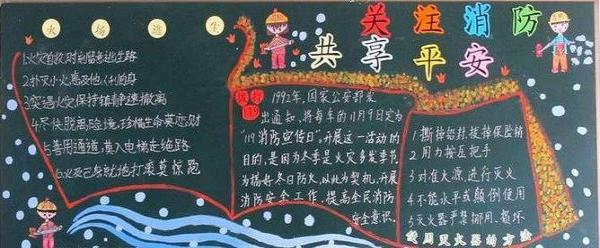 关注消防
共享平安
火场逃生
1.火灾自救,时刻留意逃生路
2.扑灭小火惠及他人利自身
3.突遇火灾保持镇静速撤离
4.尽快脱离险境,珍惜生命莫恋财
5.善用通道,莫入电梯走绝路
6.火及己身就地打滚莫惊跑
1992年,国家公安部发
出通知,将每年的11月9日定为
"119消防宣传日",开展这一活动的
目的,是因为冬季是火灾多发季节
为搞好冬日防火,以此为契机,开展
消防安全工作,提高全民消防
安全意识。
1 撕掉铅封,拔掉保险销
2 用力按压把手
3 对准火源进行灭火
4 不能水平或颠倒使用
5 灭火器严禁挪用、损坏
使用灭火器的方法